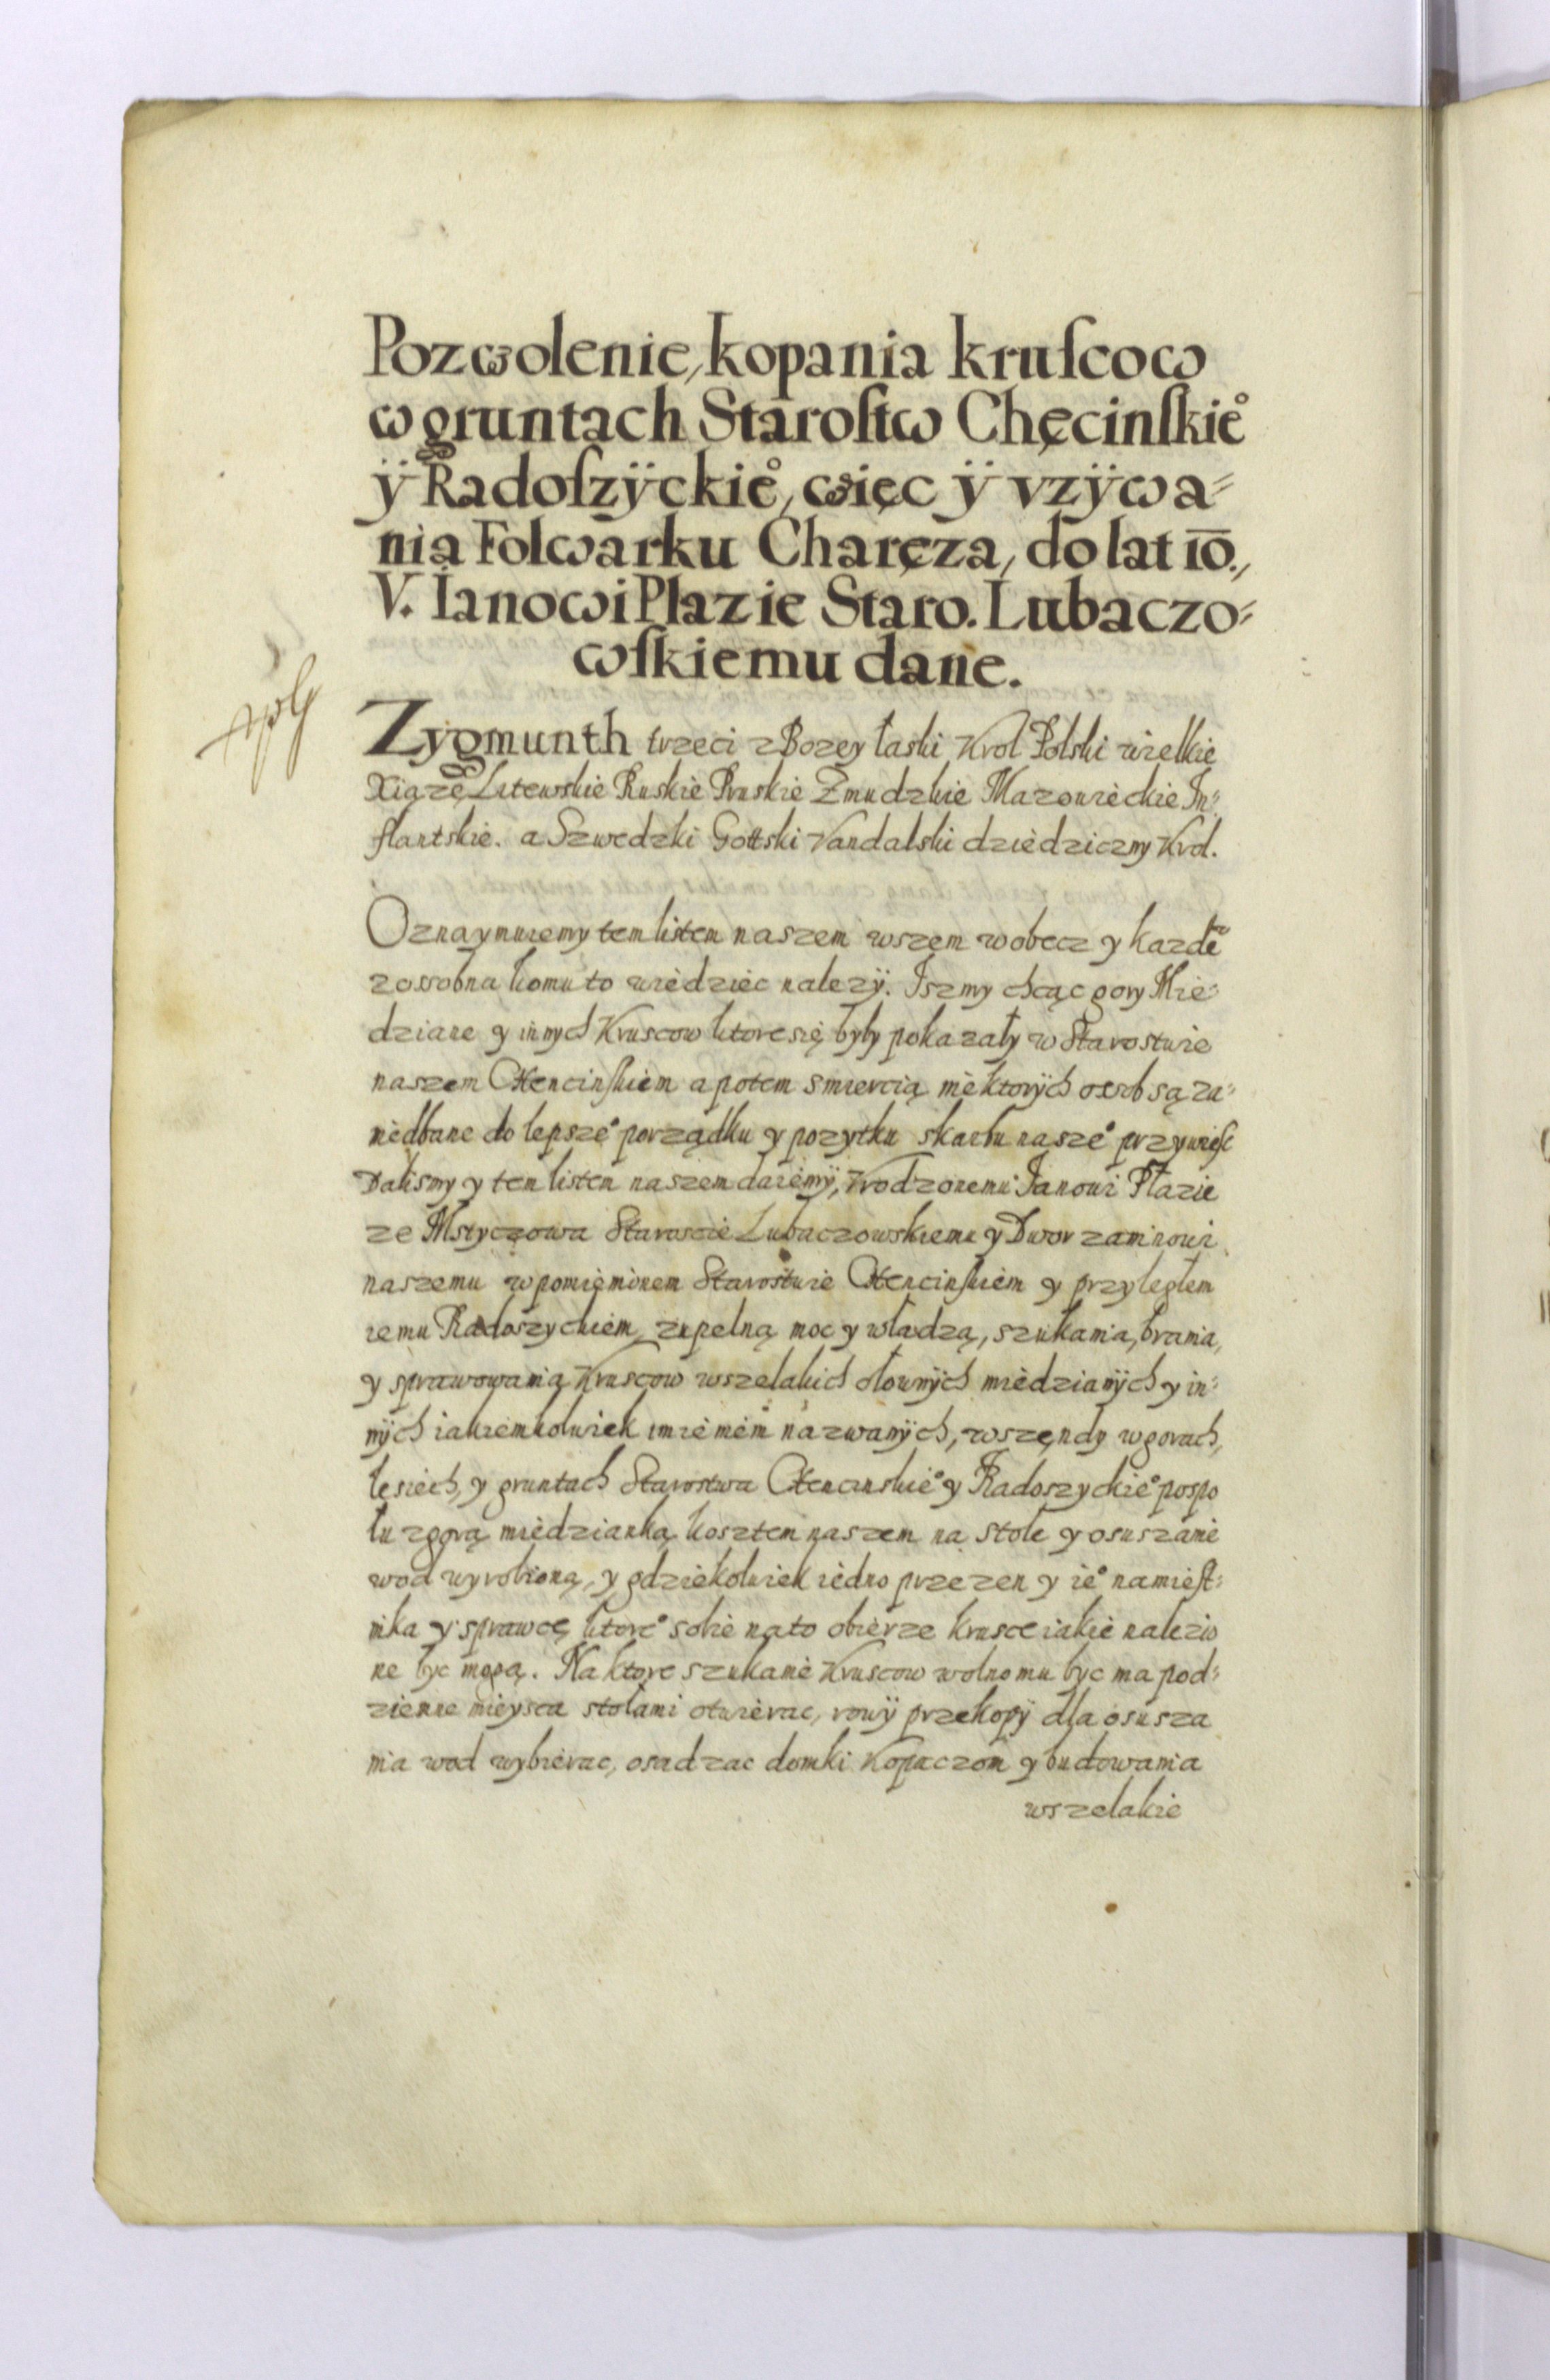 Pozwolenie, kopania kruſcow
w gruntach Staroſtw Chęcinſkie°
ÿ Radoſzÿckie°, więc ÿ vzÿwa=
nia Folwarku Charęza, do lat 10.,
V. Ianowi Plazie Staro. Lubaczo=
wſkiemu dane.
Zygmunth trzeci z Bozey łaski Krol Polski wielkie
Xiązę Litewskie Ruskie Pruskie Zmudzkie Mazowieckie In=
flantskie. a Szwedzki Gottski Vandalski dziedziczny Krol.
Oznaymuiemy tem listem naszem wszem wobecz y kazdẽ
zossobna komu to wiedziec nalezÿ. Iszmy chcąc gory Mie=
dziane y innych Kruscow ktore się były pokazały w Starostwie
naszem Chencinſkiem a potem smiercią niektorÿch osob są za=
niedbane do lepsze° porządku y pozytku skarbu nasze° przywieſc
Dalismy y tem listem naszem daiemÿ, Vrodzonemu Janowi Płazie
ze Mstyczowa Staroscie Lubaczowskiemu y Dworzaninowi
naszemu w pomienionem Starostwie Chencinſkiem y przyległem
iemu Radoszyckiem, zupelną moc y władzą, szukania, brania,
y sprawowania Kruscow wszelakich ołownÿch miedzianÿch y in=
nÿch iakiemkolwiek imieniem nazwanÿch, wszęndy w gorach,
lesiech, y gruntach Starostwa Chencinskie° y Radoszyckie° pospo
łu z gorą miedzianką kosztem naszem na stole y osuszanie
wod wyrobioną, y gdziekolwiek iedno przezen y ie° namieſt=
nika y sprawcę ktore° sobie na to obierze krusce iakie nalezio
ne byc mogą. Na ktore szukanie Kruscow wolno mu byc ma pod=
ziemne mieysca stołami otwierac, rowÿ przekopÿ dla osusza
nia wod wybierac, osadzac domki Kopaczom y budowania
wszelakie